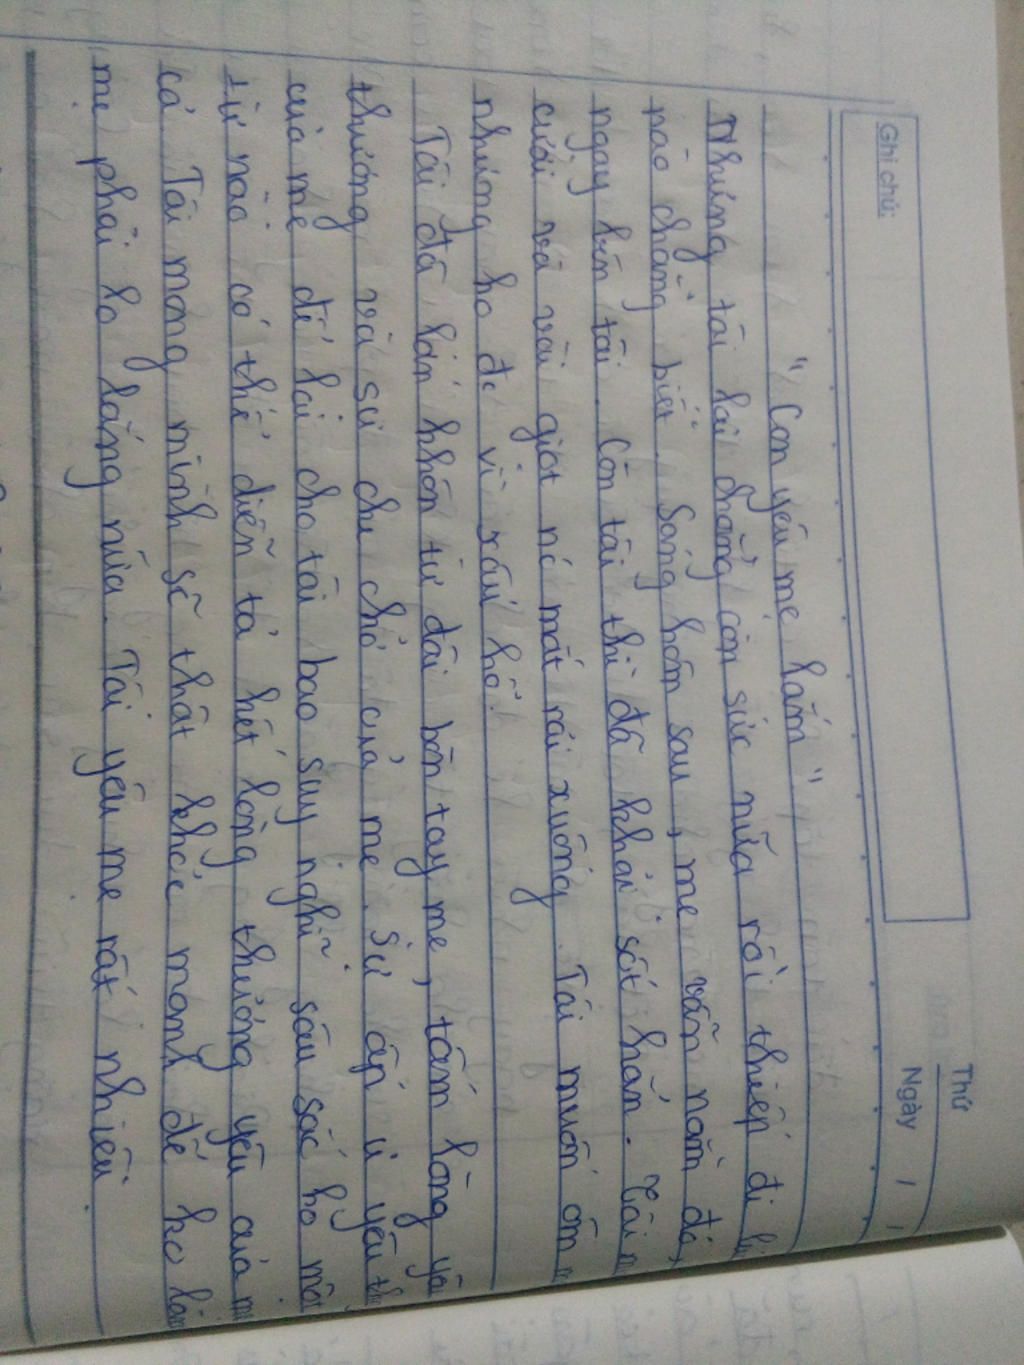 Thứ
Ngày / /
Ghi chú:
"Con yêu mẹ lắm"
Nhưng tôi lại chẳng còn sức nữa rồi thiếp đi
nào chẳng biết. Sáng hôm sau, mẹ vẫn nằm đó,
ngay bên tôi. Còn tôi thì đã khỏi sốt hẳn. Tôi
cười và vài giọt nc mắt rơi xuống. Tôi muốn ôm
nhưng ko đc vì xấu hổ.
Tôi đã lớn khôn từ đôi bàn tay mẹ, tấm lòng yêu
thương và sự che chở của mẹ. Sự ấp ủ yêu
của mẹ để lại cho tôi bao suy nghĩ sâu sắc ko một
từ nào có thể diễn tả hết lòng thương yêu của
cả Tôi mong mình sẽ thật khỏe mạnh để ko
mẹ phải lo lắng nữa. Tôi yêu mẹ rất nhiều.